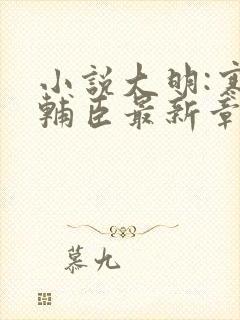 小說大明:寒
輔臣最新章
慕九